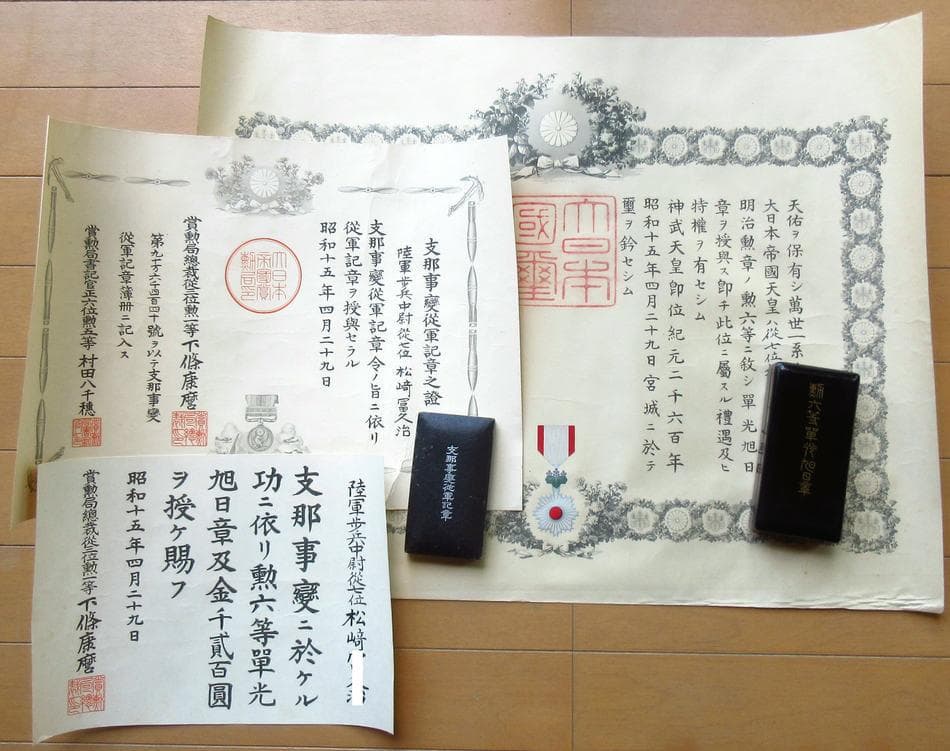 天佑ヲ保有シ萬世一系
大日本帝國天皇ハ從七位
明治勲章ノ勲六等ニ敍シ單光旭日
章ヲ授與ス即チ此位ニ屬スル禮遇及ヒ
特權ヲ有セシム
神武天皇即位紀元二千六百年
昭和十五年四月二十九日宮城ニ於テ
璽ヲ鈐セシム
大日本
國璽
勲六等單光旭日章
支那事變從軍記章之證
陸軍歩兵中尉從七位 松﨑富久治
支那事變從軍記章令ノ旨ニ依リ
從軍記章ヲ授與セラル
昭和十五年四月二十九日
大日本
帝國賞
勲局印
賞勲局總裁從三位勲一等下條康麿
號ヲ以テ支那事變
從軍記章簿冊ニ記入ス
賞勲局書記官正六位勲五等 村田八千穂
支那事變從軍記章
陸軍歩兵中尉從七位 松﨑
支那事變ニ於ケル
功ニ依リ勲六等單光
旭日章及金千貳百圓
ヲ授ケ賜フ
昭和十五年四月二十九日
賞勲局總裁從三位勲一等下條康麿